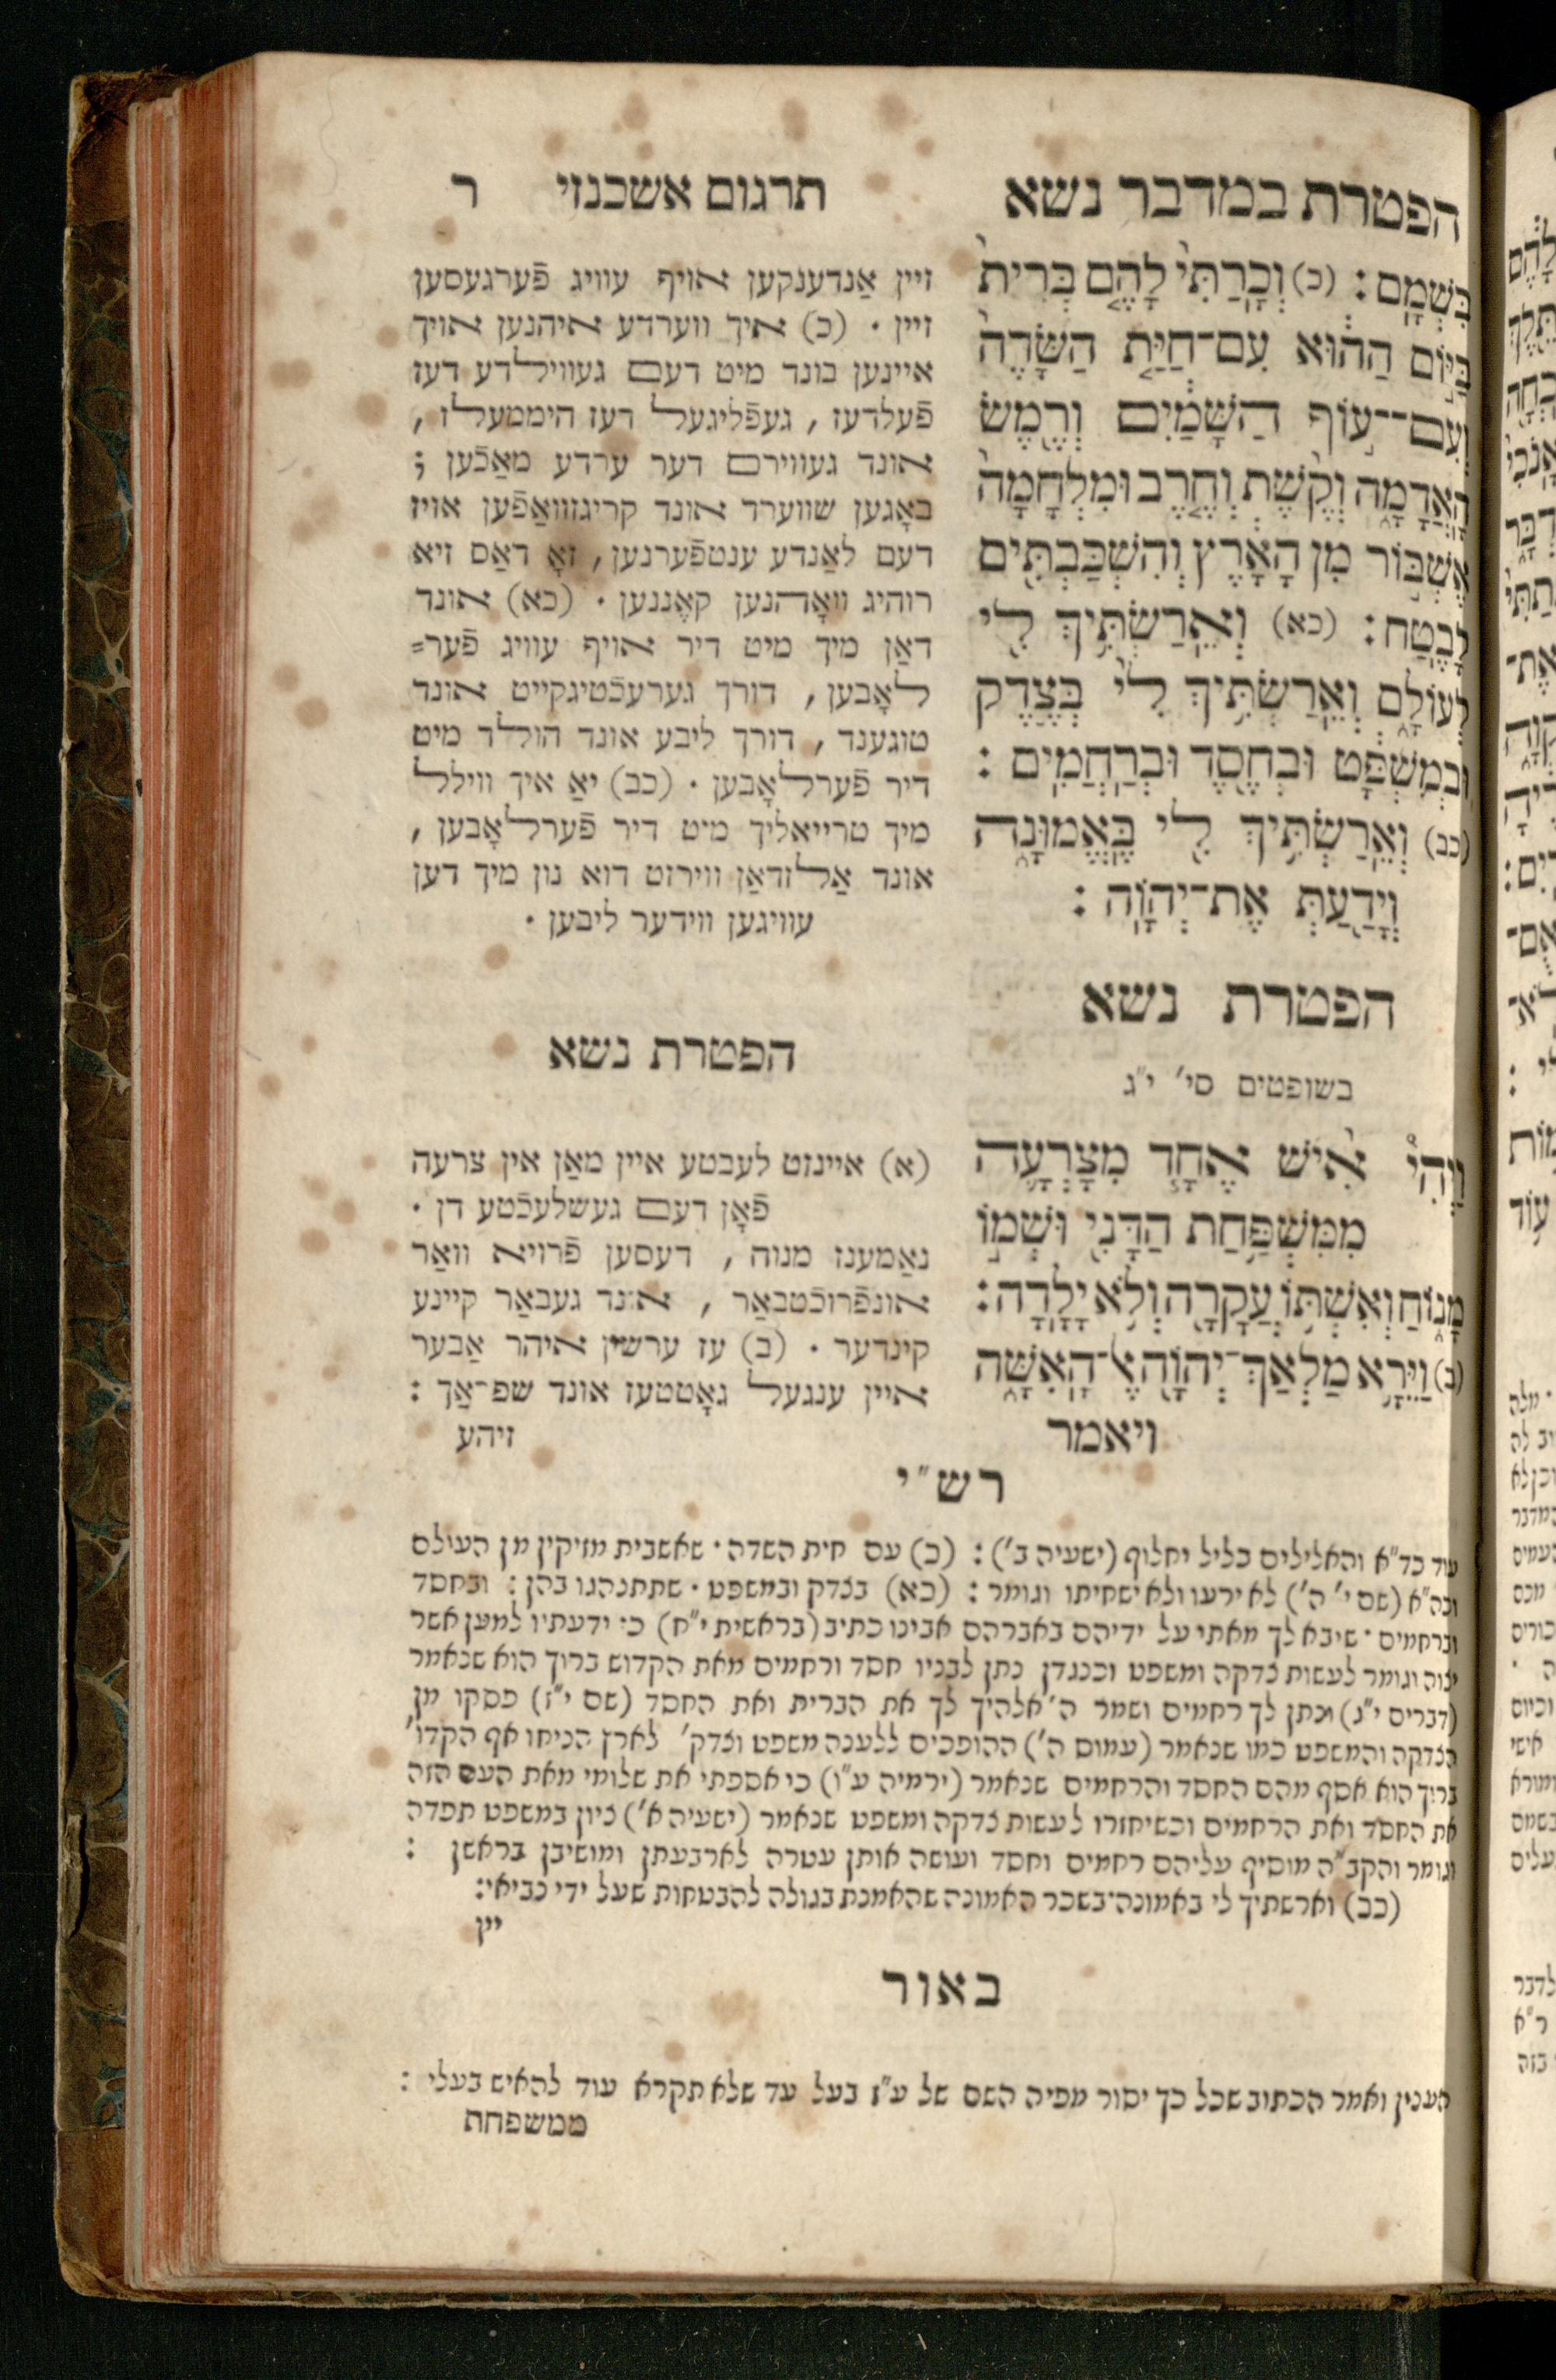 הפטרת במדבר נשא
תרגום אשכנזי
ר
בִּשְׁמָם : (כ) וְכָרַתִּי לָהֶם בְּרִית
בַּיּוֹם הַהוּא עִם־חַיַּת הַשָּׂדֶה
וְעִם־עוֹף הַשָּׁמַיִם וְרֶמֶשׂ
הָאֲדָמָה וְקֶשֶׁת וְחֶרֶב וּמִלְחָמָה
אֶשְׁבּוֹר מִן הָאָרֶץ וְהִשְׁכַּבְתִּים
לָבֶטַח : (כא) וְאֵרַשְׂתִּיךְ לִי
לְעוֹלָם וְאֵרַשְׂתִּיךְ לִי בְּצֶדֶק
וּבְמִשְׁפָּט וּבְחֶסֶד וּבְרַחֲמִים :
(כב) וְאֵרַשְׂתִּיךְ לִי בֶּאֱמוּנָה
וְיָדַעַתְּ אֶת־יְהוָֹה :
הפטרת נשא
בשופטים סי' י"ג
וַיְהִי אִישׁ אֶחָד מִצָּרְעָה
מִמִּשְׁפַּחַת הַדָּנִי וּשְׁמוֹ
מָנוֹחַ וְאִשְׁתּוֹ עֲקָרָה וְלֹא יָלָדָה :
(ב) וַיֵּרָא מַלְאַךְ־יְהוָֹה אֶל־הָאִשָּׁה
ויאמר
זיין אַנדענקען אויף עוויג פֿערגעסען
זיין . (כ) איך ווערדע איהנען אויך
איינען בונד מיט דעם געווילדע דעז
פֿעלדעז , געפֿליגעל דעז היממעלז ,
אונד געווירם דער ערדע מאַכֿען ;
באָגען שווערד אונד קריגזוואַפֿען אויז
דעם לאַנדע ענטפֿערנען , זאָ דאַס זיא
רוהיג וואָהנען קאָננען . (כא) אונד
דאַן מיך מיט דיר אויף עוויג פֿער=
לאָבען , דורך גערעכֿטיגקייט אונד
טוגענד , דורך ליבע אונד הולד מיט
דיר פֿערלאָבען . (כב) יאַ איך ווילל
מיך טרייאליך מיט דיר פֿערלאָבען ,
אונד אַלזדאַן ווירזט דוא נון מיך דען
עוויגען ווידער ליבען .
הפטרת נשא
(א) איינזט לעבטע איין מאַן אין צרעה
פֿאָן דעם געשלעכֿטע דן .
נאַמענז מנוח , דעסען פֿרויא וואַר
אונפֿרוכֿטבאַר , אונד געבאַר קיינע
קינדער . (ב) עז ערשין איהר אַבער
איין ענגעל גאָטטעז אונד שפראַך :
זיהע
רש"י
עוד כד"א והאלילים כליל יחלוף (ישעיה ב') : (כ) עם חית השדה . שאשבית מזיקין מן העולם
וכה"א (שם י' ה') לא ירעו ולא ישחיתו וגומר : (כא) בצדק ובמשפט . שתתנהגו בהן : ובחסד
וברחמים . שיבא לך מאתי על ידיהם באברהם אבינו כתיב (בראשית י"ח) כי ידעתיו למען אשר
יצוה וגומר לעשות צדקה ומשפט וכנגדן נתן לבניו חסד ורחמים מאת הקדוש ברוך הוא שנאמר
(דברים י"ג) ונתן לך רחמים ושמר ה' אלהיך לך את הברית ואת החסד (שם י"ז) פסקו מן
הצדקה והמשפט כמו שנאמר (עמוס ה') ההופכים ללענה משפט וצדק' לארץ הניחו אף הקדו'
ברוך הוא אסף מהם החסד והרחמים שנאמר (ירמיה ע"ו) כי אספתי את שלומי מאת העם הזה
את החסד ואת הרחמים וכשיחזרו לעשות צדקה ומשפט שנאמר (ישעיה א') ציון במשפט תפדה
וגומר והקב"ה מוסיף עליהם רחמים וחסד ועושה אותן עטרה לארבעתן ומושיבן בראשן :
(כב) וארשתיך לי באמונה־בשכר האמונה שהאמנת בגולה להבטחות שעל ידי נביאי :
יין
באור
הענין ואמר הכתוב שכל כך יסור מפיה השם של ע"ז בעל עד שלא תקרא עוד להאיש בעלי :
ממשפחת